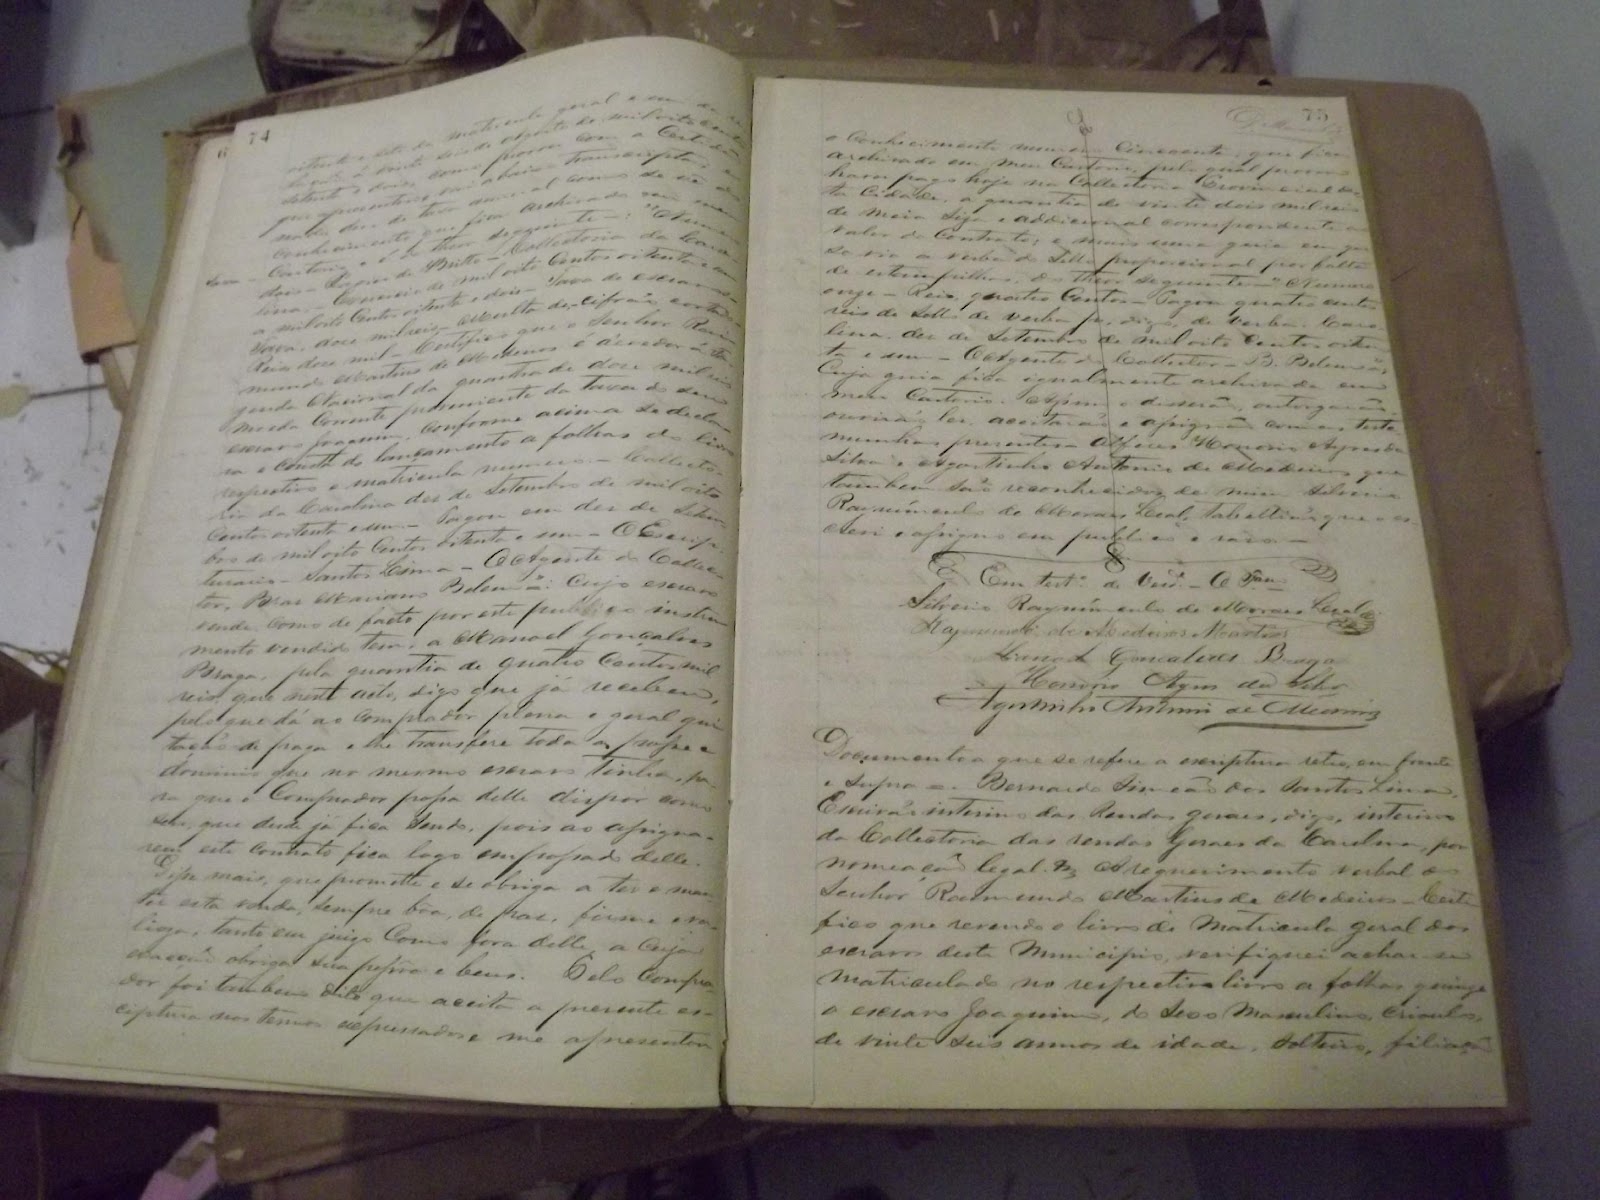 74
oitenta e sete da matricula geral e um da re
a vinte seis de Agosto de mil oito centos
setenta e dois, como provou com a Certidão
que apresentou, e vai abaixo transcripta; e
conhecimento que fica archivado em meu
Cartorio e é do theor seguinte: "Numero
dois - Collectoria da Caro-
lina - Exercicio de mil oito Centos oitenta e um
a mil oito Centos oitenta e dois - Taxa de escravos
Taxa, doze mil reis, Multa de, cifrão,
Reis doze mil - Certifico que o Senhor Ray
mundo Martins de Medeiros é devedor á Fa
zenda Nacional da quantia de doze mil reis
moeda Corrente proveniente da taxa do seu
escravo Joaquim, conforme acima se decla
ra e Consta do lançamento a folhas do livro
respectivo e matricula numero - Collecto
ria da Carolina dez de Setembro de mil oito
Centos oitenta e um - Pagou em dez de Setem
bro de mil oito Centos oitenta e um - O Escrip
turario - Santos Lima - O Agente do Collec
tor, Braz Mariano Belem: Cujo escravo
vende, como de facto por este publico instru
mento vendido tem, a Manoel Gonçalves
Braga, pela quantia de quatro Centos mil
reis, que nest acto, digo que já recebeu,
pelo que dá ao comprador plena e geral qui
tação de paga e lhe transfere toda a posse e
dominio que no mesmo escravo tinha, pa
ra que o Comprador possa delle dispor como
seu, que desde já fica sendo, pois ao assigna-
rem este contrato fica logo empossado delle.
Disse mais, que promette e se obriga a ter e man
ter esta venda, sempre bôa, de paz, firme e va
liosa, tanto em juizo Como fora delle, a Cuja
evicção obriga sua pessôa e bens. Pelo Compra
dor foi tambem dito que aceita a presente es-
criptura nos termos expressados e me apresentou
75
o Conhecimento numero Cincoenta, que fica
archivado em meu Cartorio, pelo qual provou
haver pago hoje na Collectoria Provincial des-
ta Cidade, a quantia de vinte dois mil reis
de meia Siza e addicional correspondente ao
valor do Contrato; e mais uma guia em que
se via a verba do Sello proporcional por falta
de estampilhas, do theor seguinte - "Numero
onze - Reis, quatro Centos - Pagou quatro centos
reis de Sello de verba digo, de verba. Caro-
lina, dez de Setembro de mil oito Centos oiten
ta e um - O Agente do Collector - B. Belem",
Cuja guia fica igualmente archivada em
meu Cartorio. Assim o disserão, outorgarão,
ouvirão ler, aceitarão e assignão com as teste
munhas presentes Alferes Honorio Ayres da
Silva e Agostinho Antonio de Medeiros, que
tambem são reconhecidos de mim Silverio
Raymundo de Moraes Leal, tabellião, que o es-
crevi e assigno em publico e raso -
Em testº. de Verdº. - O Tam
Silverio Raymundo de Moraes Leal
Raymundo de Medeiros Martins
Manoel Gonçalves Braga
Honorio Ayres da Silva
Agostinho Antonio de Medeiros
Documento a que se refere a escriptura retro, em frente
e supra = Bernardo Simeão dos Santos Lima,
Escrivão interino das Rendas geraes, digo, interino
da Collectoria das rendas Geraes da Carolina, por
nomeação legal. A requerimento verbal do
Senhor Raymundo Martins de Medeiros - Certi
fico que revendo o livro de Matricula geral dos
escravos deste Municipio, verifiquei achar-se
Matriculado no respectivo livro a folhas quinze
o escravo Joaquim, do Sexo Masculino, Crioulo,
de vinte seis annos de idade, solteiro, filiação